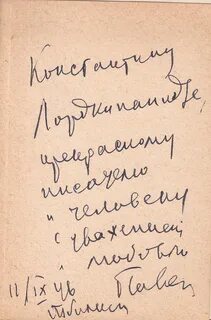 Константину
Лордкипанидзе,
прекрасному
писателю
и человеку
с уважением
любовью
11/IX 46
Тбилиси